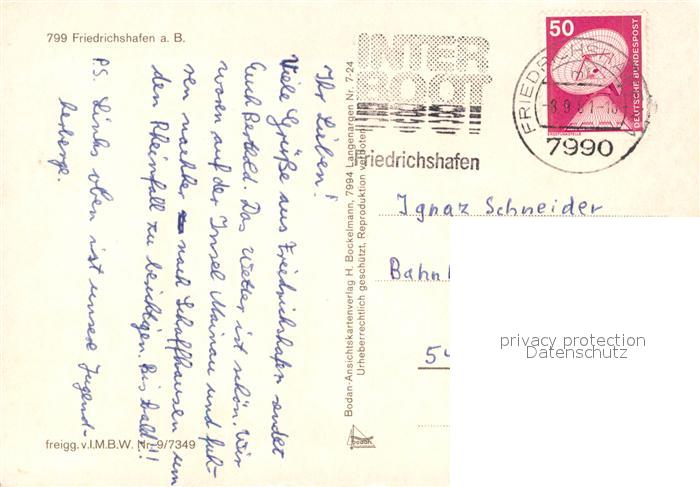 799 Friedrichshafen a. B.
Ihr Lieben!
Viele Grüße aus Friedrichshafen sendet
Euch Berthold. Das Wetter ist schön. Wir
waren auf der Insel Mainau und fuh-
ren nachher nach Schaffhausen um
den Rheinfall zu besichtigen. Bis bald!!!
P.S. Links oben ist unsere Jugend-
herberge.
freigg. v. I.M.B.W. Nr. 9/7349
Bodan-Ansichtskartenverlag H. Bockelmann, 7994 Langenargen Nr. 7-24
Urheberrechtlich geschützt, Reproduktion verboten!
bodan
INTER
BOOT
Friedrichshafen
50
DEUTSCHE BUNDESPOST
ERDEFUNKSTELLE
FRIEDRICHSHAFEN
-8.9.81-18
7990
Ignaz Schneider
Bahnh
54
privacy protection
Datenschutz